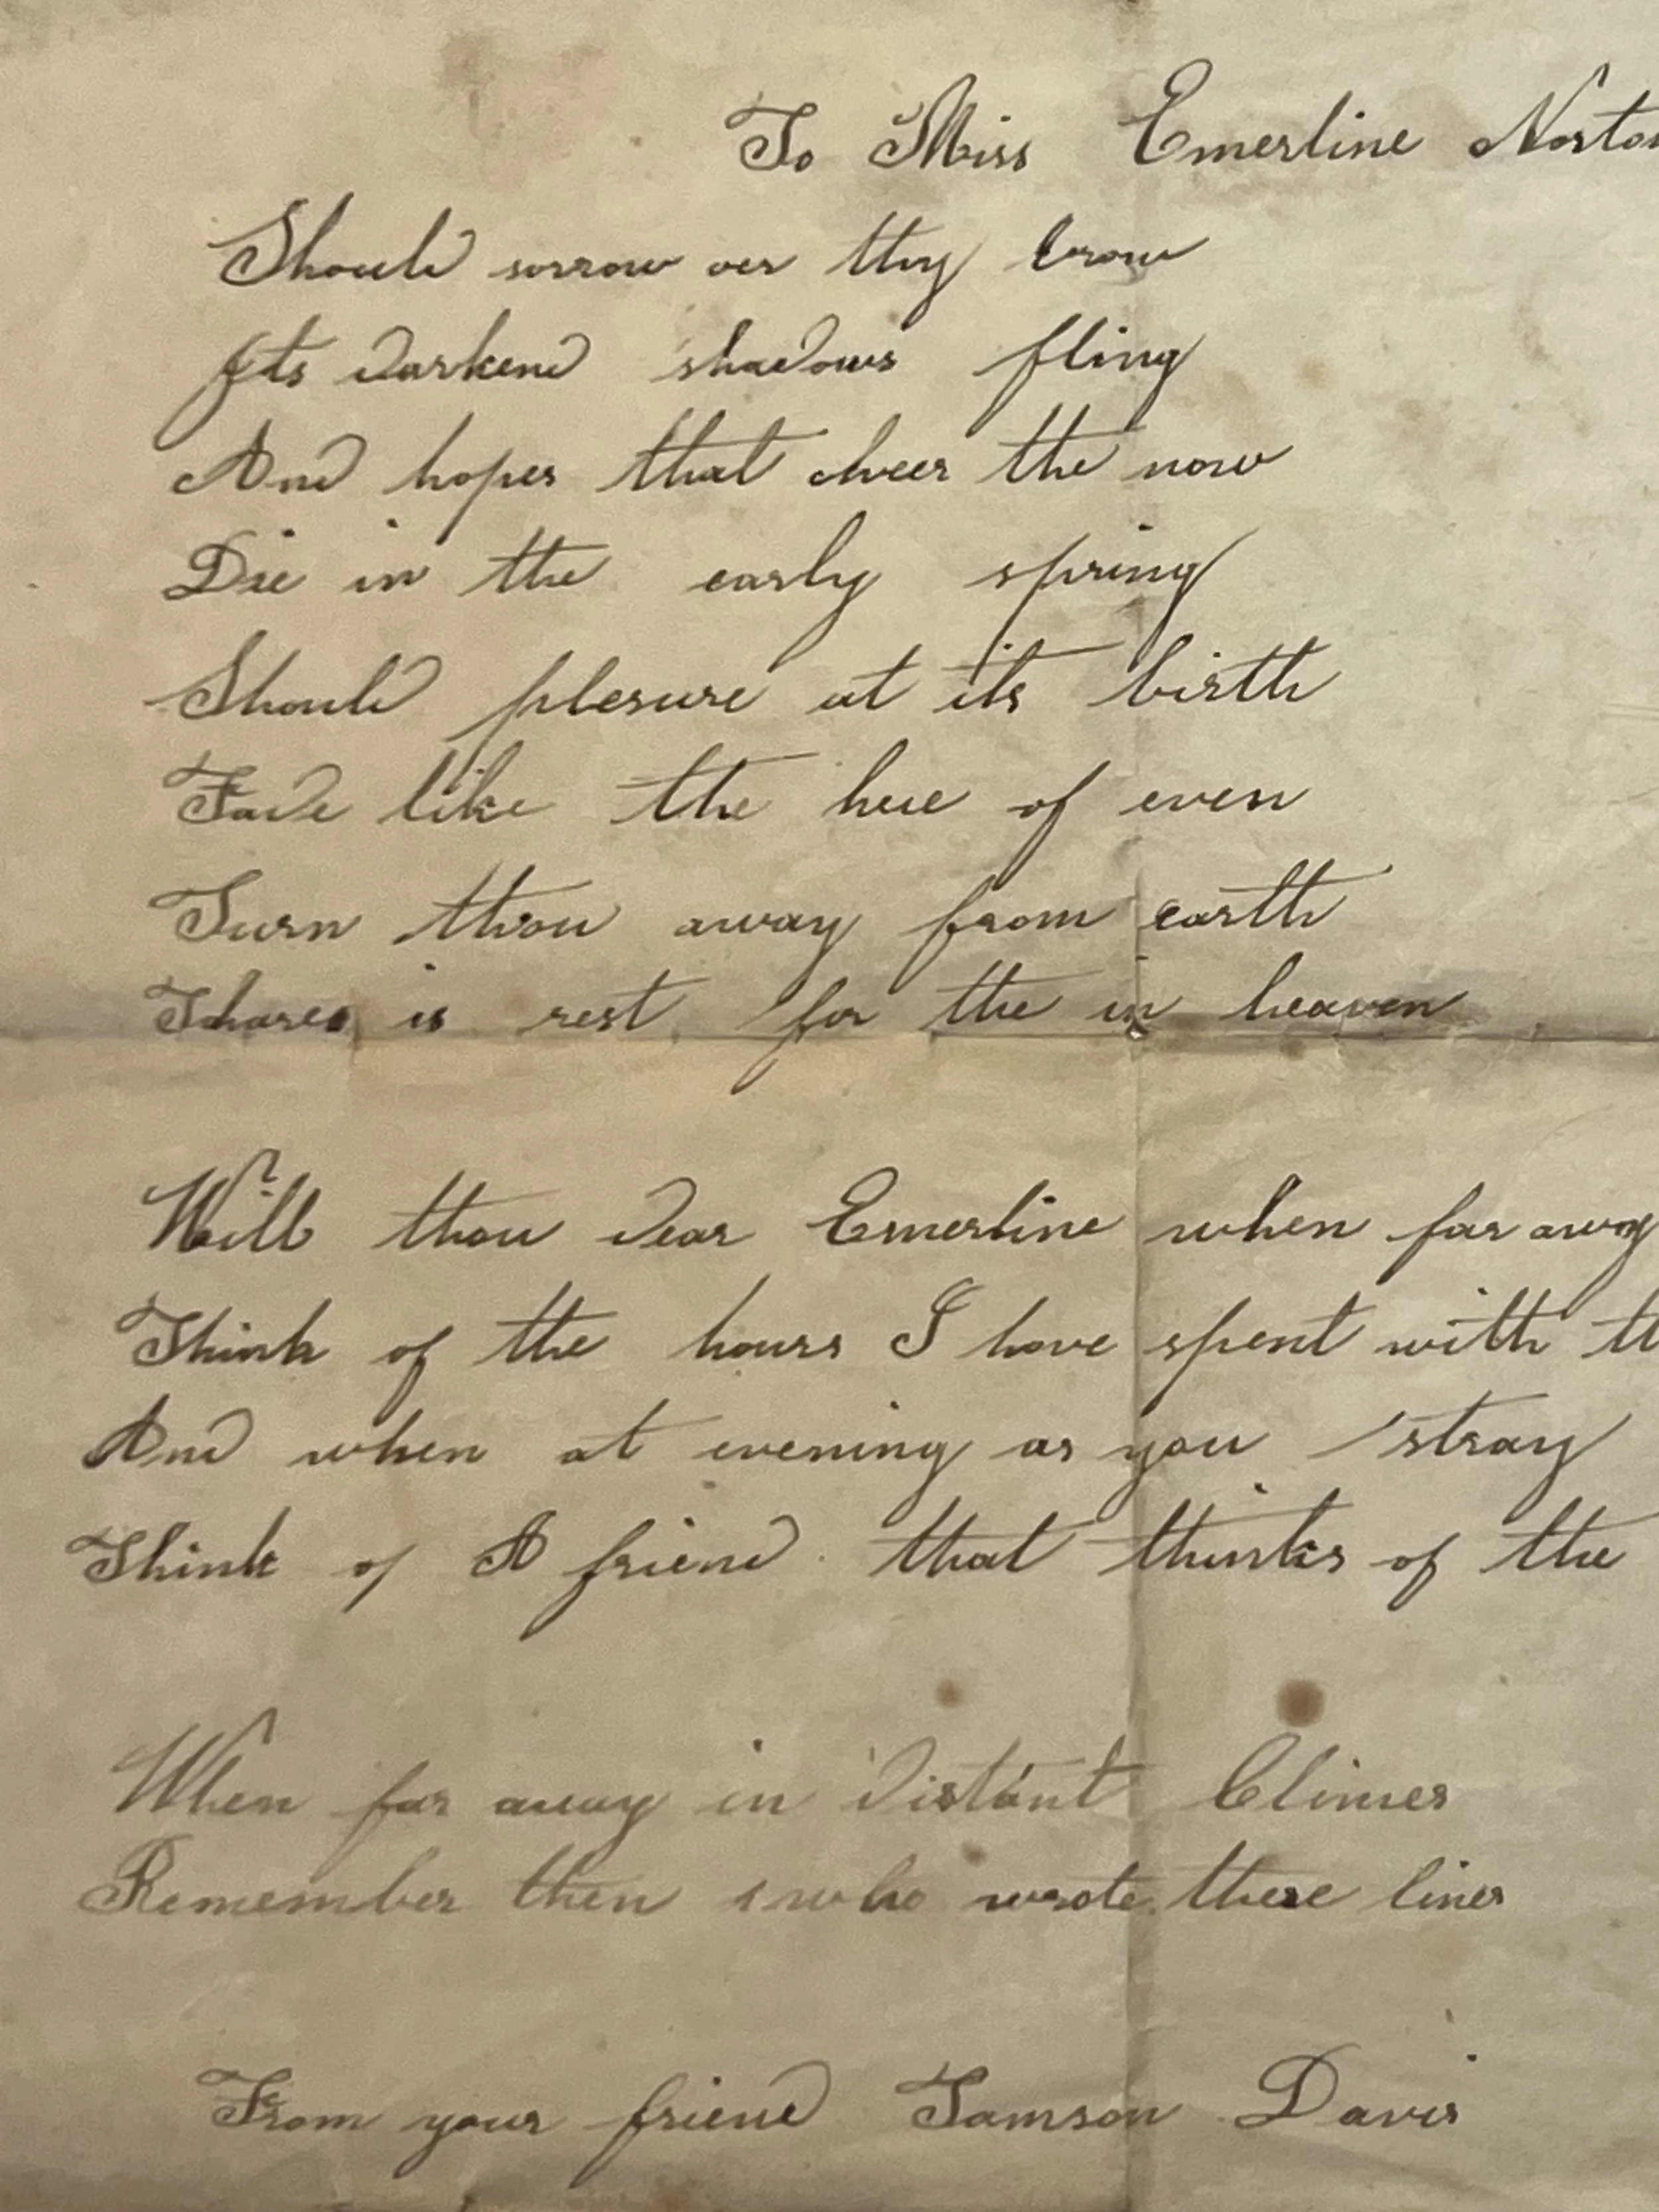 To Miss Emerline Norton
Should sorrow oer thy brow
Its darkend shadows fling
And hopes that cheer the now
Die in the early spring
Should plesure at its birth
Fade like the hue of even
Turn thou away from earth
Thare is rest for the in heaven
Will thou dear Emerline when far away
Think of the hours I have spent with
And when at evening as you stray
Think of A friend that thinks of the
When far away in distant Climes
Remember then who wrote these lines
From your friend Tamson Davis